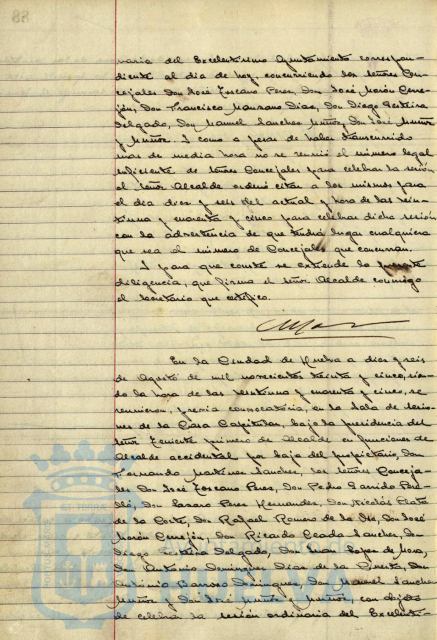 naria del Excelentísimo Ayuntamiento correspon-
diente al día de hoy, concurriendo los señores Con-
cejales Don José Toscano Peres, Don José Morón Cere-
jón, Don Francisco Manzano Dias, Don Diego
Delgado, Don Manuel Sanches Muñoz, Don José Muñoz
y Muñoz. I como a pesar de haber transcurrido
mas de media hora no se reunió el número legal
suficiente de señores Concejales para celebrar la sesión
el señor Alcalde ordenó citar a los mismos para
el día dies y seis del actual y hora de las vein-
tiuna y cuarenta y cinco para celebrar dicha sesión
con la advertencia de que tendrá lugar cualquiera
que sea el número de Concejales que concurran.
I para que conste se extiende la presente
diligencia, que firma el señor Alcalde conmigo
el Secretario que certifico.
En la Ciudad de Huelva a dies y seis
de Agosto de mil novecientos treinta y cinco, sien-
do la hora de las veintiuna y cuarenta y cinco, se
reunieron, previa convocatoria, en la Sala de Sesio-
nes de la Casa Capitular, bajo la presidencia del
señor Teniente primero de Alcalde en funciones de
Alcalde accidental por baja del propietario, Don
Fernando Martines Sanches, los señores Conceja-
les Don José Toscano Peres, Don Pedro Garrido Pere-
lló, Don Lazaro Peres Hernandes, Don Nicolás
de la Corte, Don Rafael Romero de la , Don José
Morón Cerejón, Don Ricardo Sanches, Don
Diego Delgado, Don Juan Lopes de Mora,
Don Antonio Domingues Dias de la , Don
Antonio Barroso Domingues, Don Manuel Sanches
Muñoz y Don José Muñoz y Muñoz, con objeto
de celebrar la sesión ordinaria del Excelentí-